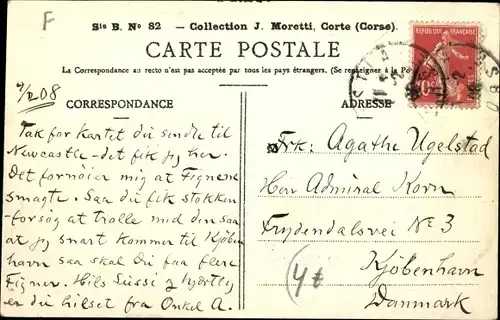 F
Sie B. No 82 – Collection J. Moretti, Corte (Corse).
CARTE POSTALE
La Correspondance au recto n'est pas acceptée par tous les pays étrangers. (Se renseigner à la Po
REPUBLIQUE FRANÇAISE
10c
CORRESPONDANCE
ADRESSE
2/2 08
Tak for kartet du sendte til
Newcastle – det fik jeg her.
Det fornøier mig at Fignene
smagte. Saa du fik stokken
forsøg at trolle med den saa
at jeg snart kommer til Kjøben
havn saa skal du faa flere
Figner. Hils Sussi og hjertlig
er du hilset fra Onkel A.
Frk: Agathe Ugelstad
Herr Admiral Korn
Frydendalsvei No 3
Kjöbenhavn
Danmark